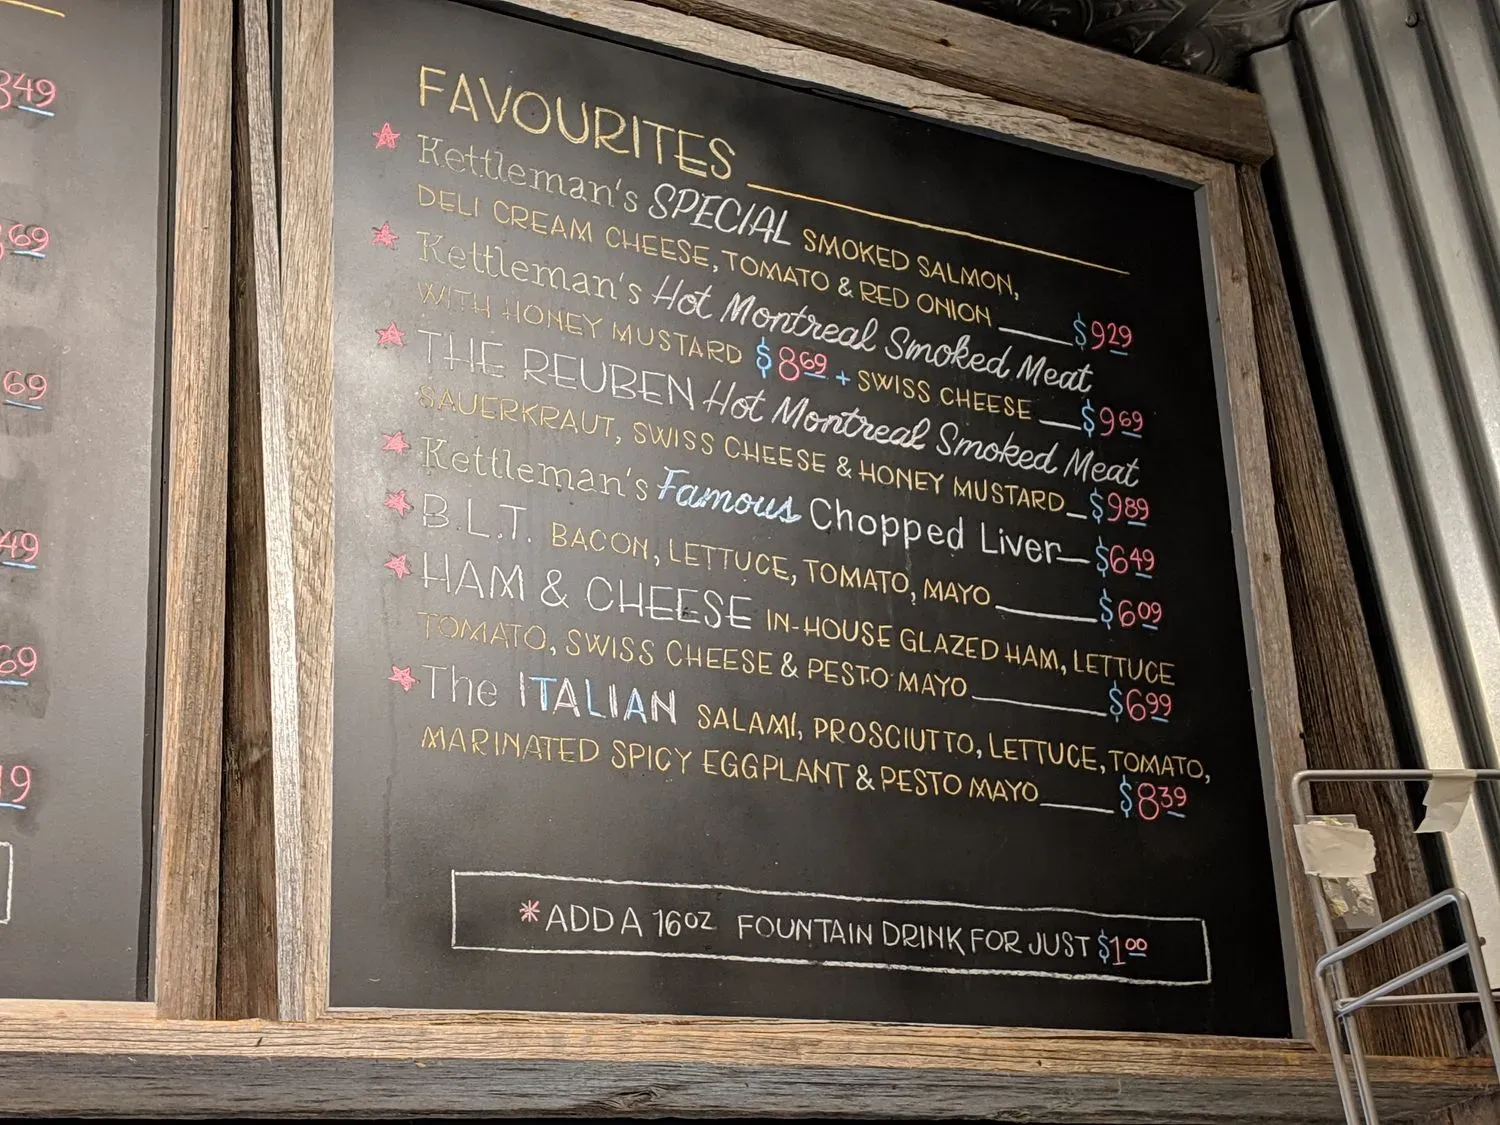 849
69
69
49
69
19
FAVOURITES
Kettleman's SPECIAL SMOKED SALMON,
DELI CREAM CHEESE, TOMATO & RED ONION $929
Kettleman's Hot Montreal Smoked Meat
WITH HONEY MUSTARD $869 + SWISS CHEESE $969
THE REUBEN Hot Montreal Smoked Meat
SAUERKRAUT, SWISS CHEESE & HONEY MUSTARD $989
Kettleman's Famous Chopped Liver $649
B.L.T. BACON, LETTUCE, TOMATO, MAYO $609
HAM & CHEESE IN-HOUSE GLAZED HAM, LETTUCE
TOMATO, SWISS CHEESE & PESTO MAYO $699
The ITALIAN SALAMI, PROSCIUTTO, LETTUCE, TOMATO,
MARINATED SPICY EGGPLANT & PESTO MAYO $839
*ADD A 16oz FOUNTAIN DRINK FOR JUST $100